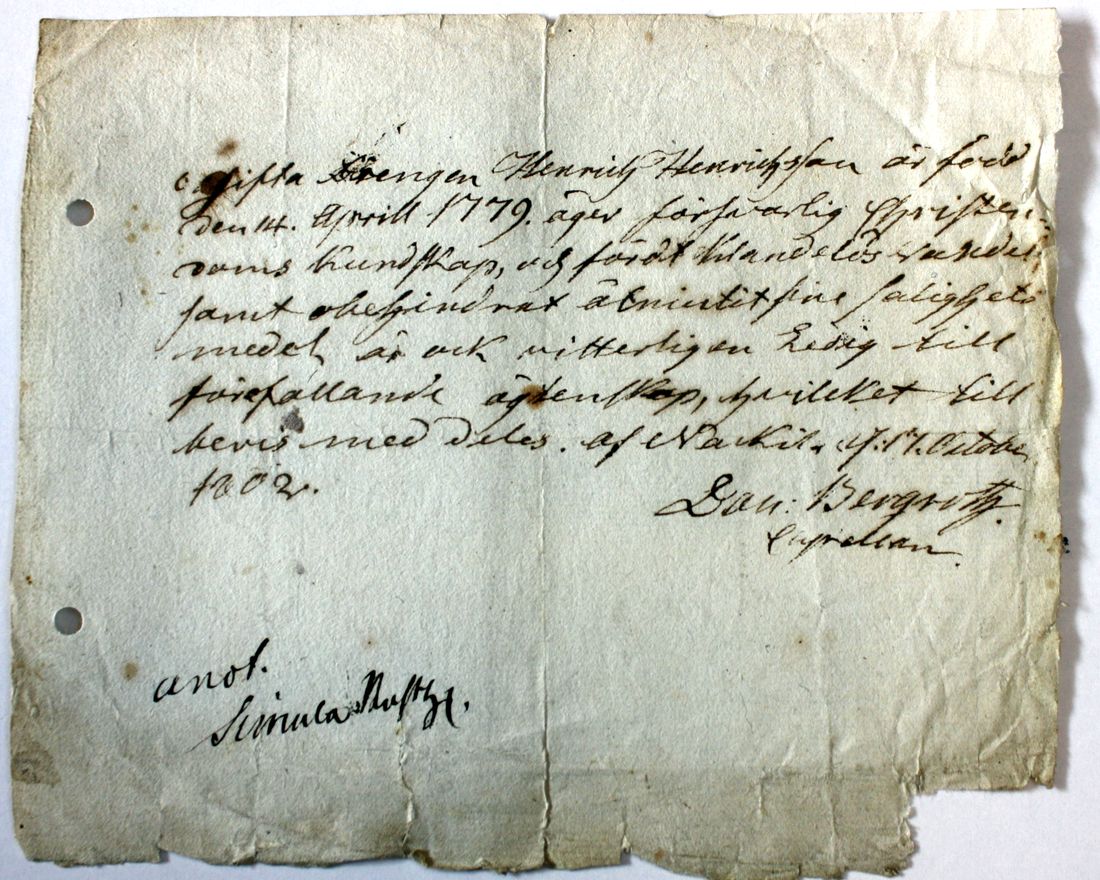 ogifta Drengen Henrich Henrichsson är född
den 14. Aprill 1779. äger försvarlig Christen-
doms kundskap, och fördt klandelös vandel
samt obehindrat åtniutit sine salighets
medel, är ock vitterligen Ledig till
förefallande ägtenskap, hvilket till
bevis meddeles. af Nackil. d. 17. Octobr
1802.
Dan: Bergroth.
Capellan.
anot.
Simula Rusth.